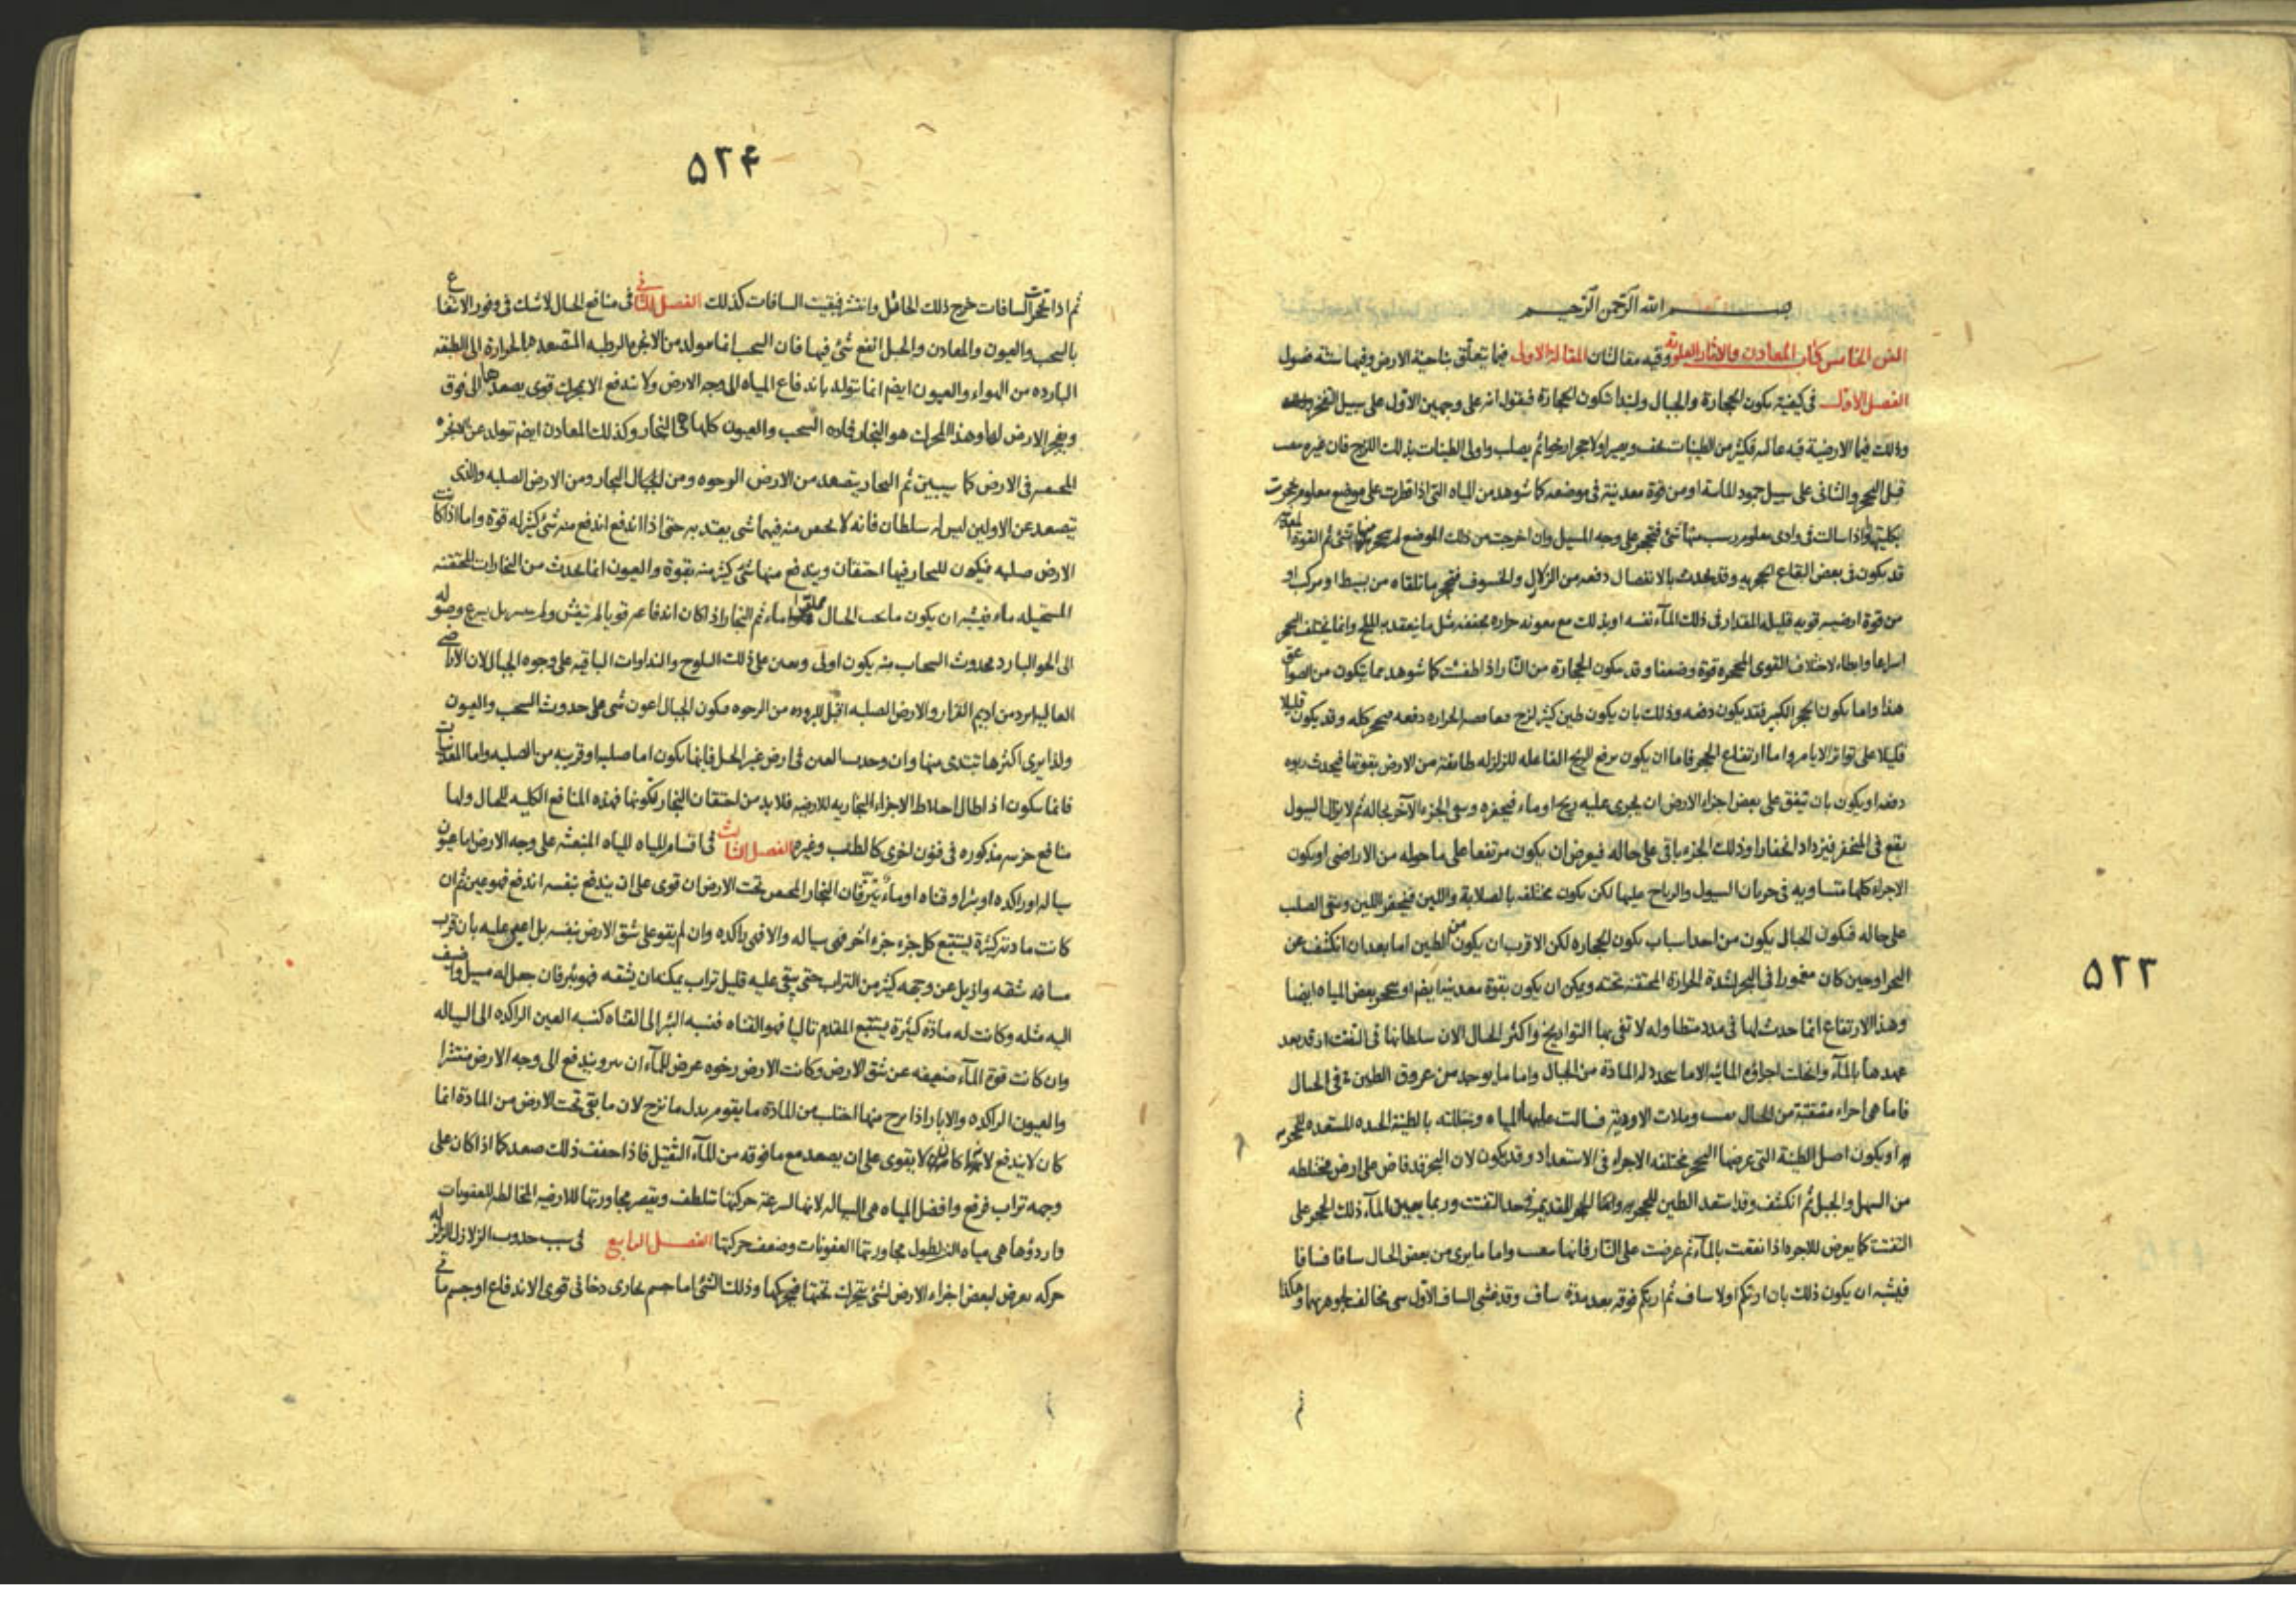 بسم الله الرحمن الرحيم
الفن الخامس كتاب المعادن والاثار العلوية وفيه مقالتان المقالة الاولى فيما يتعلق بناحية الارض وفيها ستة فصول
الفصل الاول فى كيفية تكون الحجارة والجبال ولنبدا بتكون الحجارة فيقول انه على وجهين الاول على سبيل التفخر
وذلك فيما الارضية فيه غالبه فكثير من الطينات يجف ويصير اولا حجرا رخوا ثم يصلب واولى الطينات بذلك اللزج فان غيره
قبل التحجر والثانى على سبيل جمود المائية اومن قوة معدنية فى موضعه كما شوهد من المياه التى اذا قطرت على موضع معلوم تحجرت
بكليتها واذا سالت فى وادى معلوم رسب منها شئ فتحجر على وجه المسيل وان اخرجت من ذلك الموضع لم يتحجر منها شئ ثم القوة
قد يكون فى بعض البقاع الحجريه وقد يحدث بالانفصال دفعه من الزلازل والخسوف فتحجر ما تلقاه من بسيط او مركب او
من قوة ارضيه قويه قليلة المقدار فى ذلك الماء نفسه او بذلك مع معونه حرارة مجففه مثل ما ينعقد به الملح وانما يختلف التحجر
اسراعا وابطاء لاختلاف القوى المحجره قوة وضعفا وقد يتكون الحجارة من النار اذا اطفئت كما شوهد مما يتكون من الصواعق
هذا واما تكون الحجر الكبير فقد يكون دفعه وذلك بان يكون طين كثير لزج الحراره دفعه فيتحجر كله وقد يكون قليلا
قليلا على تواتر الايام واما ارتفاع الحجر فاما ان يكون برفع الريح الفاعله للزلزله طائفة من الارض بقوتها فيحدث ربوه
دفعه او يكون بان يتفق على بعض اجزاء الارض ان يجرى عليه ريح او ماء فيحفره وبقى الجزء الاخر بحاله ثم لا يزال السيول
يقع فى المنحفر فيزداد انحفارا وذلك الجزء باقى على حاله فيعرض ان يكون مرتفعا على ما حوله من الاراضى او يكون
الاجزاء كلها متساويه فى جريان السيول والرياح عليها لكن يكون مختلفه بالصلابة واللين فينحفر اللين ويبقى الصلب
على حاله فيكون الجبال يكون من احد اسباب تكون الحجاره لكن الاقرب ان يكون من الطين اما بعد ان انكشف عن
البحر او حين كان مغمورا فى البحر لشدة الحرارة المحتقنة تحته ويمكن ان يكون بقوة معدنية ايضم او بتحجر بعض المياه ايضا
وهذا الارتفاع انما حدث لها فى مدد متطاوله لا تفى بها التواريخ واكثر الجبال الان سلطانها فى التفتت اذ قد بعد
عهدها بالماء وانحلت اجزاؤه المائيه الا ما يتجدد له المادة من الجبال واما ما يوجد من عروق الطينه فى الجبال
فاما هى اجزاء متفتتة من الجبال وملات الاودية فسالت عليها المياه وخللته بالطينة الجيده المستعده للتحجر
او يكون اصل الطينة التى عرضها التحجر مختلفه الاجزاء فى الاستعداد وقد يكون لان البحر قد فاض على ارض مختلطه
من السهل والجبل ثم انكشف وقد استعد الطين للتحجر والحجر القديم فى حد التفتت وربما يعين الماء ذلك الحجر على
التفتت كما يعرض للاجر اذا نقعت بالماء ثم عرضت على النار فانها واما ما يرى من بعض الجبال سافا فسافا
فيشبه ان يكون ذلك بان ارتكم اولا ساف ثم ارتكم فوقه بعد مدة ساف وقد غشى الساف الاول شى مخالف لجوهريهما وهكذا
ثم
۵۲۳
۵۲۴
ثم اذا تحجرت السافات خرج ذلك الحائل وانتثر فبقيت السافات كذلك الفصل الثانى فى منافع الجبال لا شك فى وفور الانتفاع
بالسحب والعيون والمعادن والجبل انفع شئ فيها فان السحب انما يتولد من الابخره الرطبه المتصعده بالحرارة الى الطبقه
البارده من الهواء والعيون ايضم انما يتولد باندفاع المياه الى وجه الارض ولا يندفع الا بمحرك قوى يصعدها الى فوق
ويفجر الارض لها وهذا المحرك هو البخار فماده السحب والعيون كلها هى البخار وكذلك المعادن ايضم يتولد عن الابخره
المحتقنه فى الارض كما سيبين ثم البخار يتصعد من الارض الرخوه ومن الجبال البخار ومن الارض الصلبه والذى
يتصعد عن الاولين ليس له سلطان فانه لا يحتبس منه فيهما شى يعتد به حتى اذا اندفع اندفع منه شئ كثير له قوة واما اذا كانت
الارض صلبه فيكون للبخار فيها احتقان ويندفع منها شئ كثير منه بقوة والعيون انما يحدث من البخارات المحتقنه
المستحيله ماء فيشبه ان يكون ما تحت الجبال مملوا ماء ثم البخار اذا كان اندفاعه قويا لم يتفش ولم بل يسرع وصوله
الى الجو البارد فحدوث السحاب منه يكون اولى ويعين على ذلك الثلوج والنداوات الباقيه على وجوه الجبال لان الاراضى
العاليه ابرد من اديم القرار والارض الصلبه اقبل للبروده من الرخوه فيكون الجبال اعون شى على حدوث السحب والعيون
ولذا يرى اكثرها تبتدى منها وان وجدت العين فى ارض غير الجبل فانها يكون اما صلبه او قريبه من الصلبه واما المعدنيات
فانما يتكون اذ اطال اختلاط الاجزاء البخاريه للارضيه فلا بد من احتقان البخار لتكونها فهذه المنافع الكليه للجبال ولها
منافع جزئيه مذكوره فى فنون اخرى كالطب وغيره الفصل الثالث فى اقسام المياه المياه المنبعثه على وجه الارض اما عيون
سياله او راكده او بئر او قناه او ماء نز فان البخار المحتبس تحت الارض ان قوى على ان يندفع بنفسه اندفع فهو عين ثم ان
كانت مادته كثيرة ليستتبع كل جزء جزءا اخر فهى سياله والا فهى راكده وان لم يقو على شق الارض بنفسه بل اعين عليه بان قرب
مسافه شقه وازيل عن وجهه كثير من التراب حتى بقى عليه قليل تراب يمكنه ان يشقه فهو بئر فان جعل له مسيل واضيف
اليه مثله وكانت له مادة كثيرة يستتبع المقدم تاليا فهو القناه فنسبه البئر الى القناه كنسبه العين الراكده الى السياله
وان كانت قوة الماء ضعيفه عن شق الارض وكانت الارض رخوه عرض للماء ان ينز ويندفع الى وجه الارض منتشرا
والعيون الراكده والابار اذا نزح منها اجتلب من المادة ما يقوم بدل ما نزح لان ما بقى تحت الارض من المادة انما
كان لا يندفع لانه كان لا يقوى على ان يصعد مع ما فوقه من الماء الثقيل فاذا خفف ذلك صعد كما اذا كان على
وجهه تراب فرفع وافضل المياه هى السياله لانها لسرعة حركتها تتلطف ويقصر مجاورتها للارضيه المخالطه للعفونات
واردؤها هى مياه النز لطول مجاورتها العفونات وضعف حركتها الفصل الرابع فى سبب حدوث الزلازل الزلزله
حركه يعرض لبعض اجزاء الارض لشئ يتحرك تحتها فيحركها وذلك الشئ اما جسم بخارى دخانى قوى الاندفاع او جسم مائى